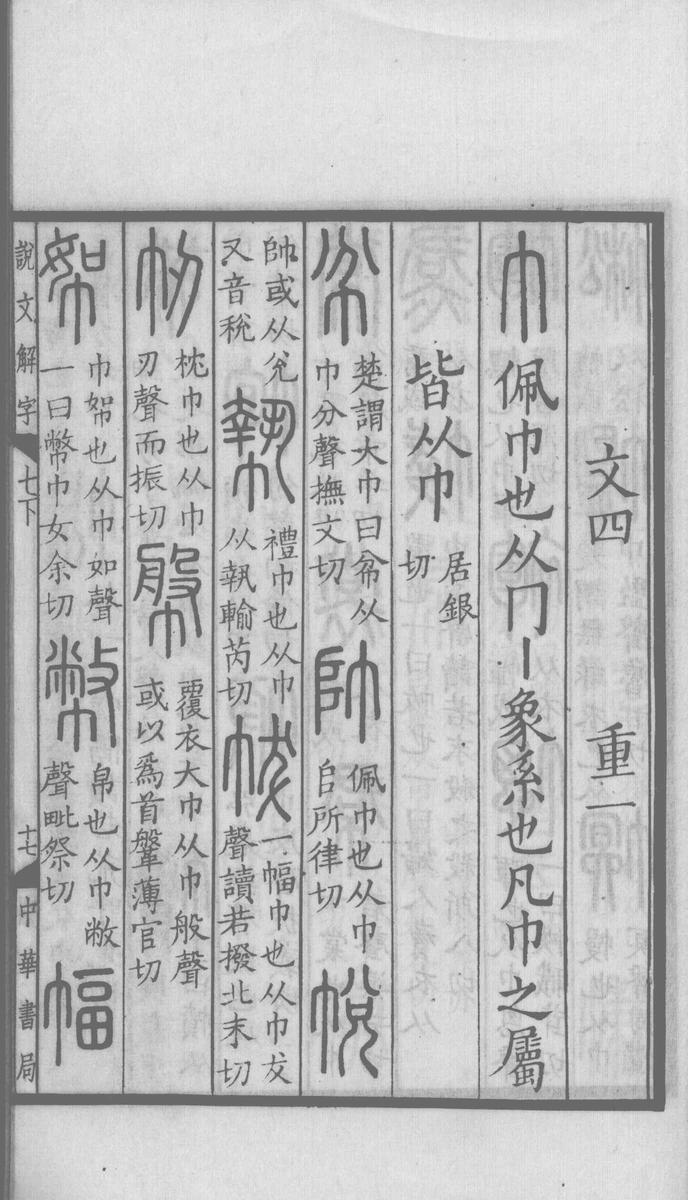 文四　重一
巾 佩巾也从冂丨象糸也凡巾之屬
皆从巾 居銀切
㡀 楚謂大巾曰㡀从巾分聲撫文切 帥 佩巾也从巾𠂤所律切 帨
帥或从兌又音稅 㙯 禮巾也从巾从執輸芮切 帗 一幅巾也从巾犮聲讀若撥北末切
㠴 枕巾也从巾刃聲而振切 幋 覆衣大巾从巾般聲或以爲首鞶薄官切
帤 巾帤也从巾如聲一曰幣巾女余切 幣 帛也从巾敝聲毗祭切 幅
說文解字 七下 十七 中華書局